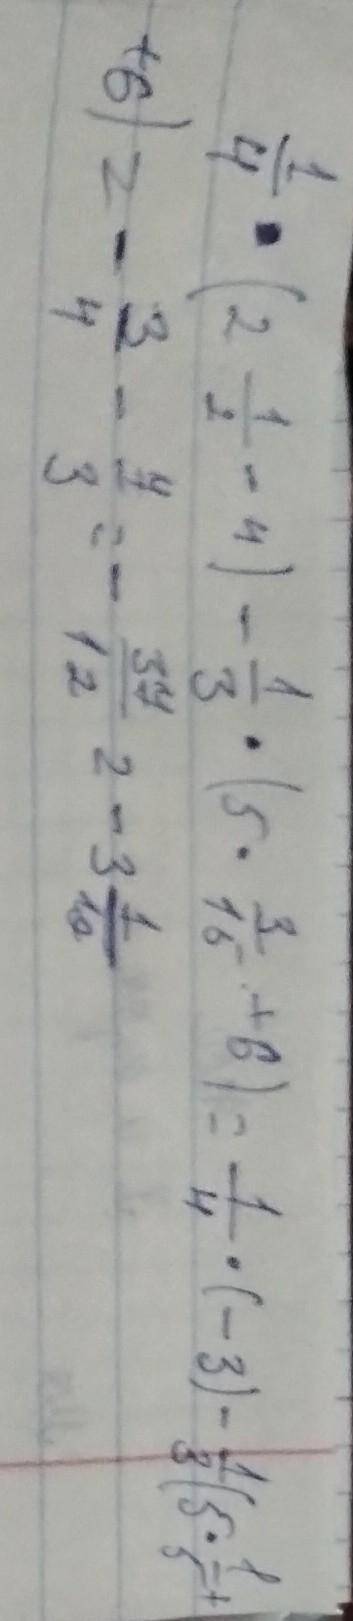 1/4 · (2 1/2 - 4) - 1/3 · (5 · 3/15 + 6) = 1/4 · (-3) - 1/3 (5 · 1/5 +
+6) = - 3/4 - 4/3 = - 34/12 = - 3 1/10